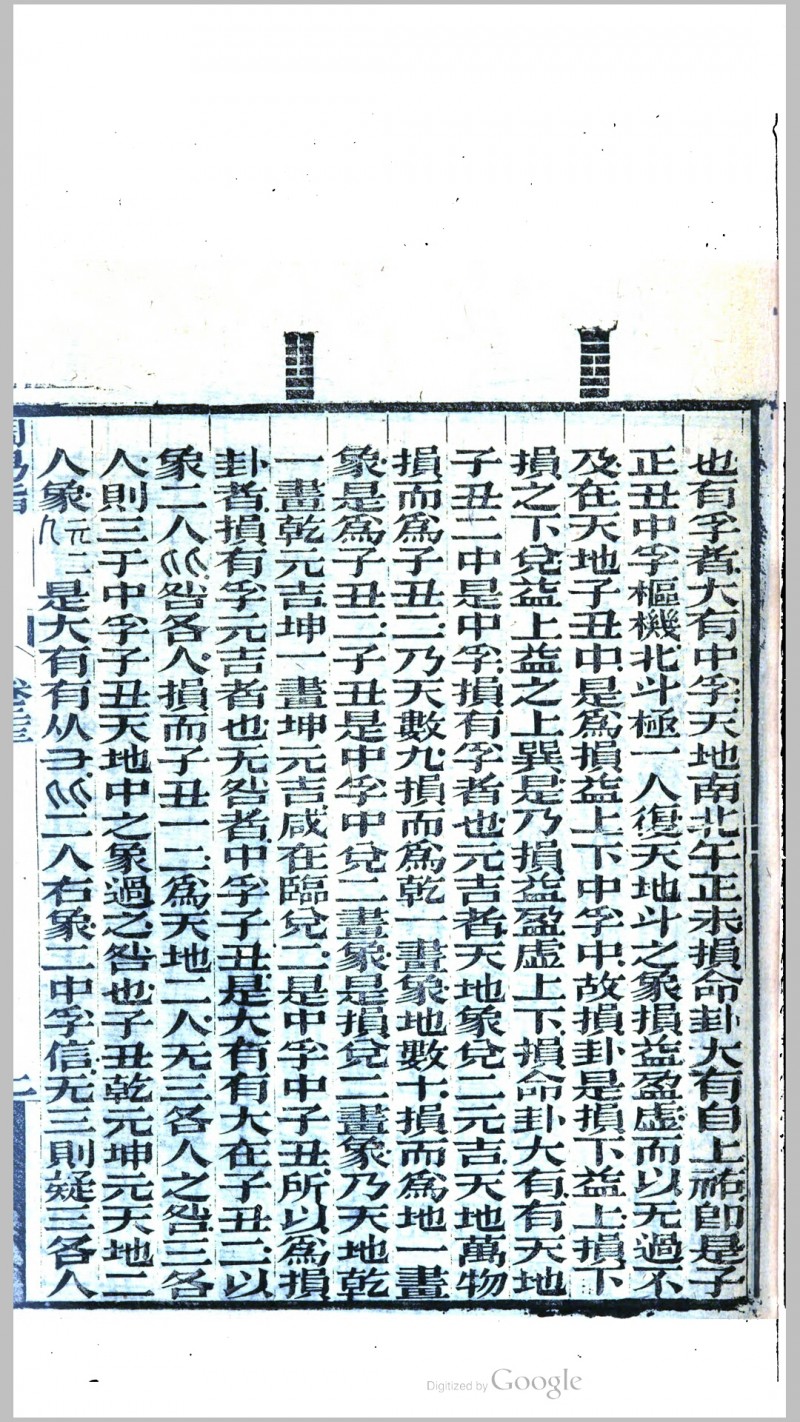 也有孚者大有中孚天地南北午正未損命卦大有自上祐卽是子
正丑中孚樞機北斗極一人復天地斗之象損益盈虛而以无過不
及在天地子丑中是爲損益上下中孚中故損卦是損下益上損下
損之下兌益上益之上巽是乃損益盈虛上下損命卦大有有天地
子丑二中是中孚損有孚者也元吉者天地象兌二元吉天地萬物
損而爲子丑二乃天數九損而爲乾一畫象地數十損而爲地一畫
象是爲子丑二子丑是中孚中兌二畫象是損兌二畫象乃天地乾
一畫乾元吉坤一畫坤元吉咸在臨兌二是中孚中子丑所以爲損
卦者損有孚元吉者也无咎者中孚子丑是大有有大在子丑二以
象二人咎各人損而子丑一二爲天地二人无三各人之咎三各
人則三于中孚子丑天地中之象過之咎也子丑乾元坤元天地二
人象元二是大有有从二人右象二中孚信无三則疑三各人
周易指 卷三三 二
Digitized by Google